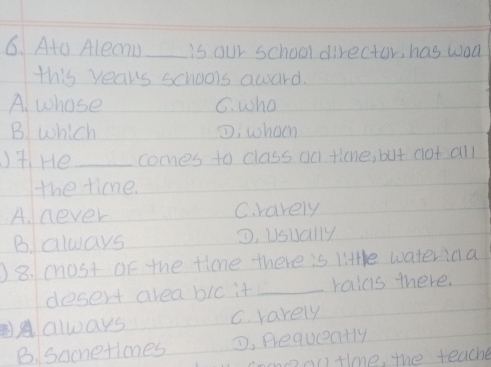 6. Ato Alemu ___ is our school director, has won
this years schools award.
A. whose C. who
B. which D. whom
7. He ___ comes to class on time, but not all
the time.
A. never C. rarely
B. always D. usually
8. most of the time there is little water in a
desert area b/c it ___ rains there.
A always C. rarely
B. Sometimes D, Frequently
time, the teache